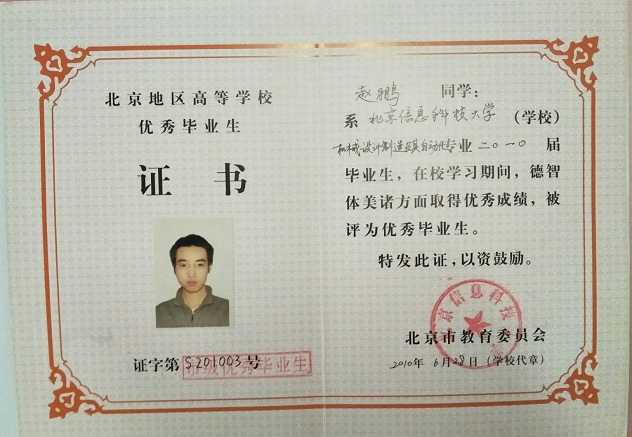 北京地区高等学校
优秀毕业生
证书
证字第S201003号
市级优秀毕业生
赵鹏 同学：
系北京信息科技大学（学校）
机械设计制造及其自动化专业二〇一〇届
毕业生，在校学习期间，德智
体美诸方面取得优秀成绩，被
评为优秀毕业生。
特发此证，以资鼓励。
北京信息科技
北京市教育委员会
2010年6月28日（学校代章）